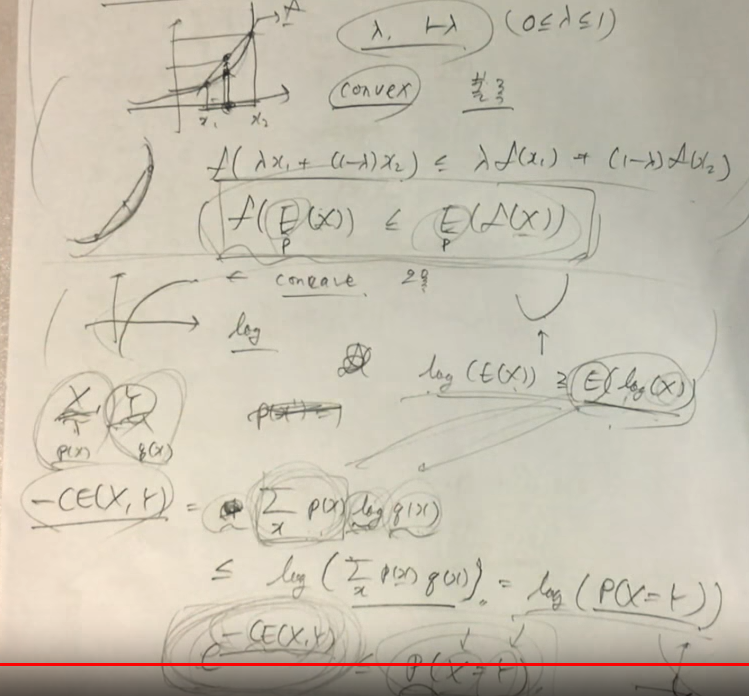 f
λ, 1-λ (0≤λ≤1)
convex
x₁ x₂
f(λx₁ + (1-λ)x₂) ≤ λf(x₁) + (1-λ)f(x₂)
f(E_P(X)) ≤ E_P(f(X))
← concave
log
↑
log(E(X)) ≥ E(log(X))
X, Y
p(x) q(x)
-CE(X,Y) = Σ_x p(x) log q(x)
≤ log(Σ_x p(x) q(x)) = log(P(X=Y))
e^{-CE(X,Y)} ≤ P(X=Y)